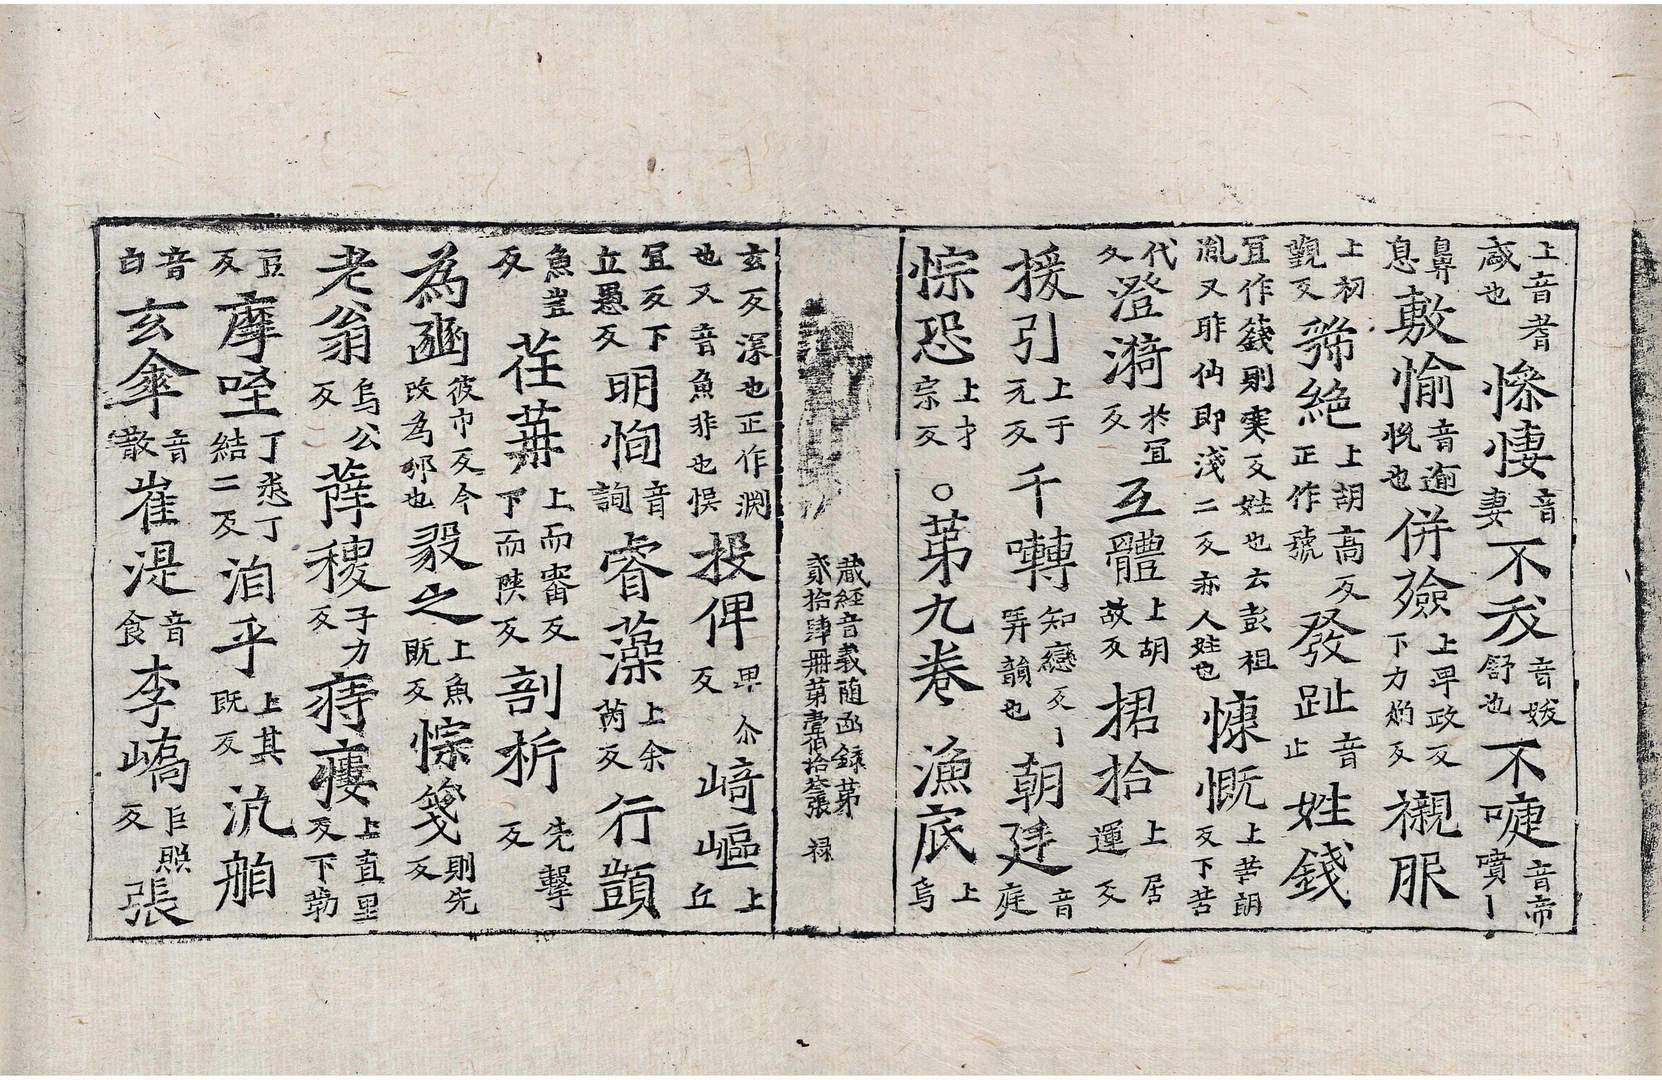 上音耆𦒿也慘悽音妻不𢦶音㛐舒也不嚏音帝噴丨
鼻息敷愉音逾悅也併殮上卑政反下力焰反襯服
上初覲反號絕上胡高反正作號發趾音止姓錢
冝作籛則寒反姓也云彭祖胤又昨仙即淺二反亦人姓也慷慨上苦朗反下苦
代久澄漪於冝反互體上胡故反捃拾上居運反
援引上于元反千囀知戀反丁弄韻也朝建音庭
悰恐上才宗反○第九卷 漁㡳上烏
藏經音義隨函録第貳拾肆冊第壹伯拾叁張 禄
玄反深也正作淵也又音魚非也悮投俾卑尒反崎嶇上丘
冝反下丘愚反明恂音詢睿藻上余芮反行顗
魚豈反荏苒上而審反下而陝反剖析先擊反
為豳彼巾反今改為邠也毅之上魚既反悰箋則先反
老翁烏公反薩稷子力反痔瘻上直里反下勒
豆反摩咥丁悉丁結二反洎乎上其既反汎舶
音白玄傘音散崔湜音食李嶠巨照反張